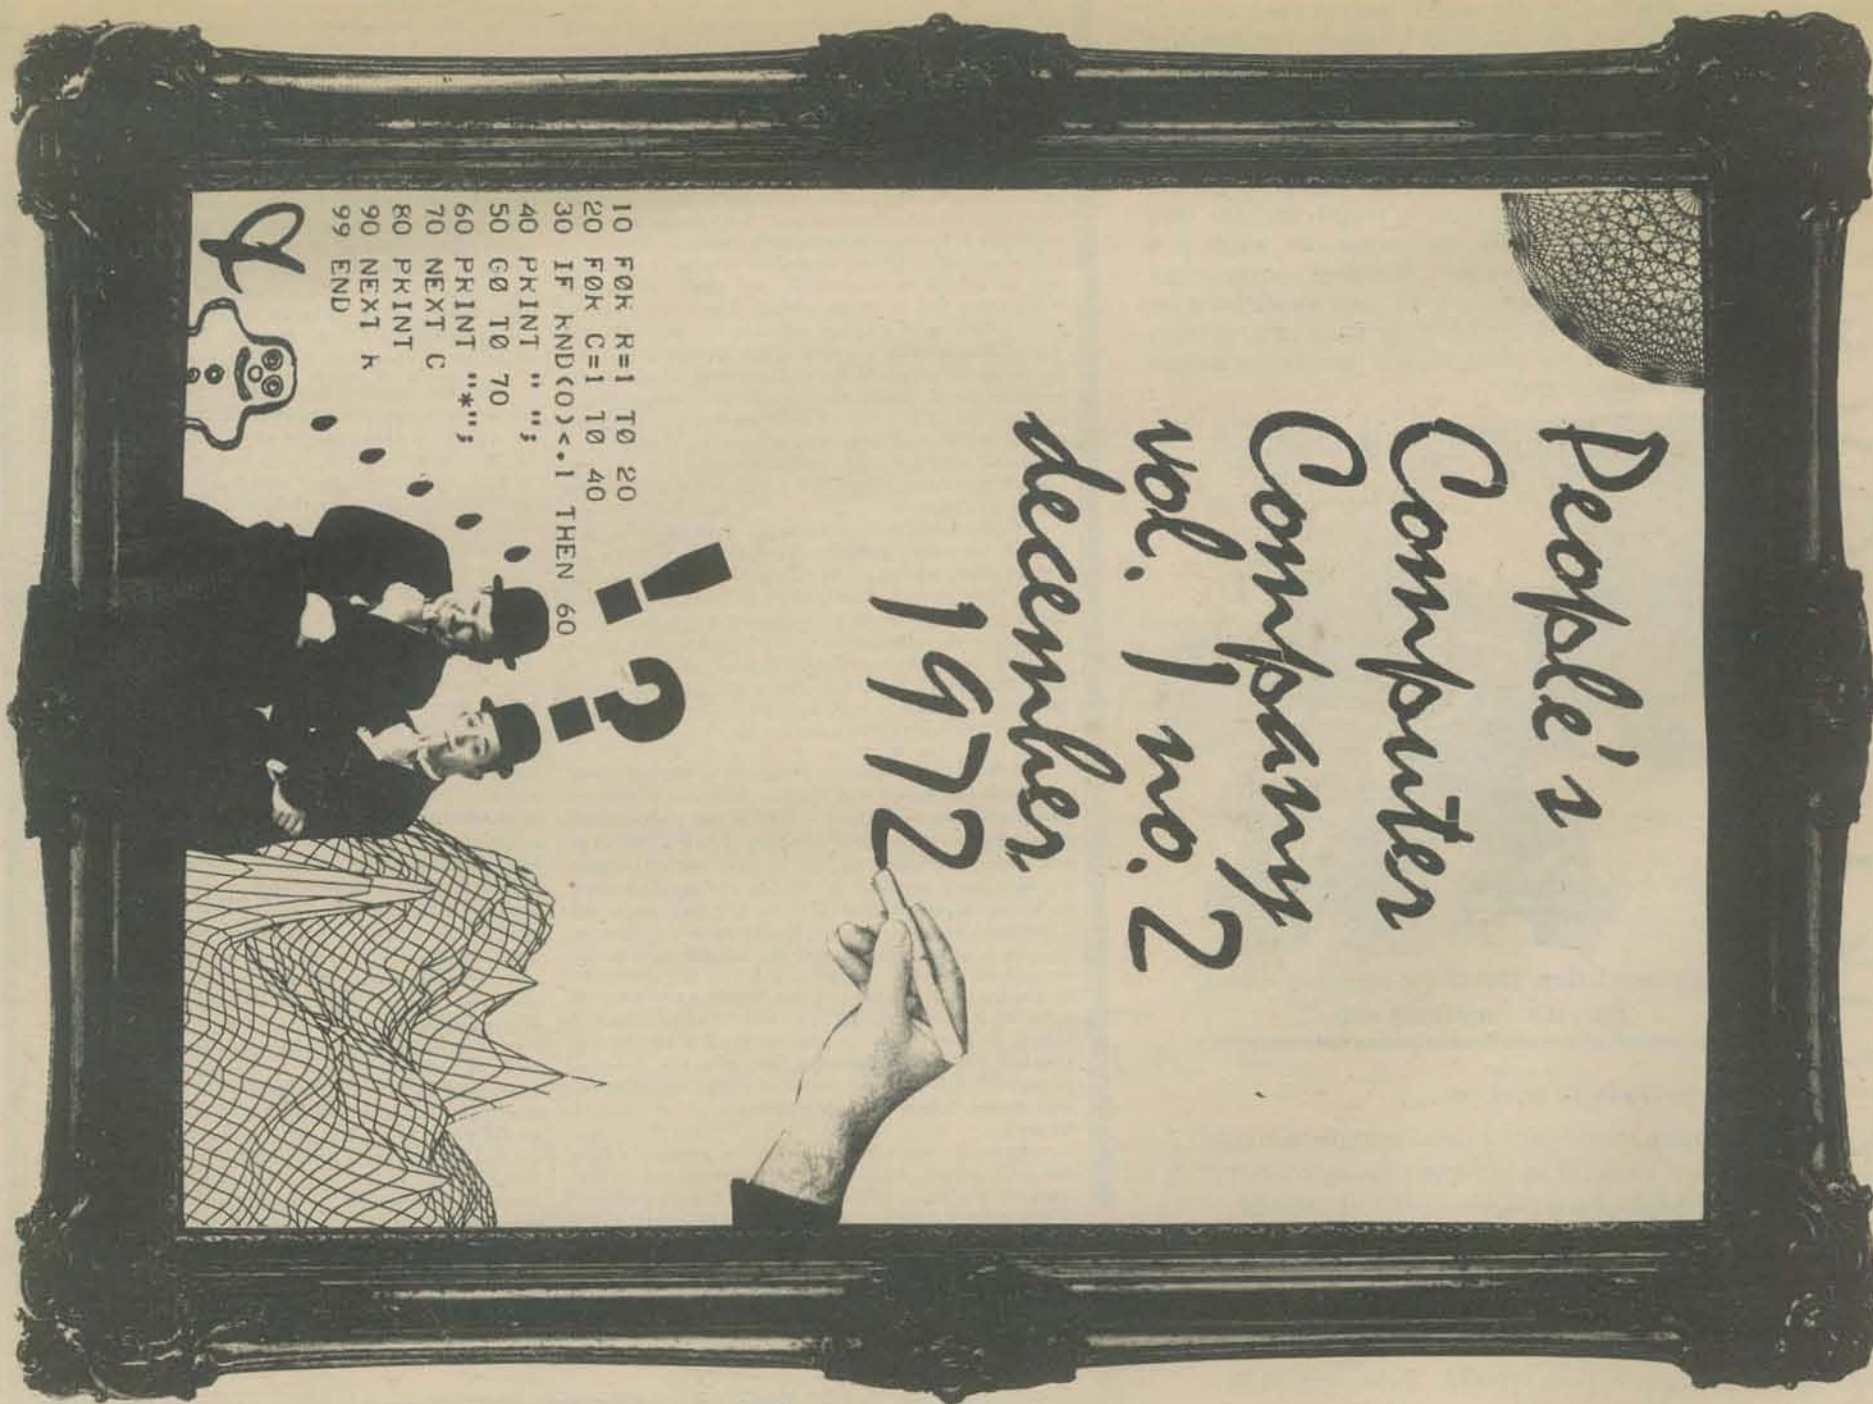 People's
Computer
Company
vol. 1 no. 2
december
1972
! ?
10 FØR R=1 TØ 20
20 FØR C=1 TØ 40
30 IF RND(0)<.1 THEN 60
40 PRINT " ";
50 GØ TØ 70
60 PRINT "*";
70 NEXT C
80 PRINT
90 NEXT R
99 END